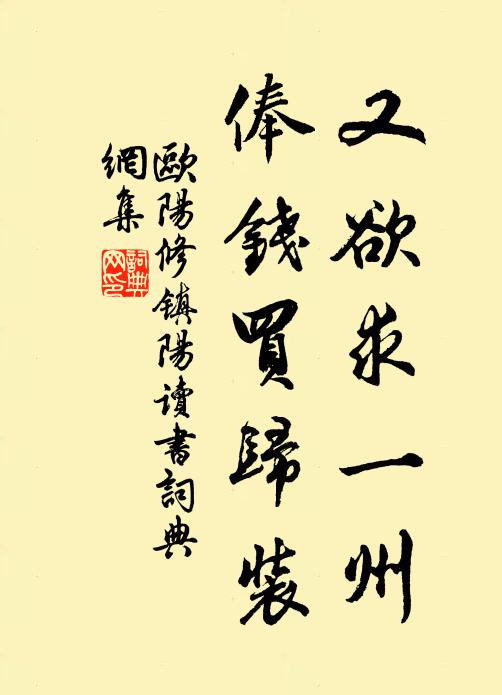 又欲求一州
俸錢買歸裝
歐陽修鎮陽讀書詞典
網集
詞典
网印